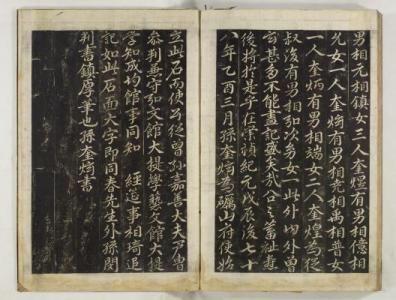 男相元相鎮女三人奎煌有男相億相
允女一人奎㷩有男相亮相禹相普女
一人奎炳有男相端女二人奎煌爲從
叔後有男相弘次多女一此外內外曾
玄甚多不能盡記盛矣哉公之蓄祉意
後將於是乎在崇禎紀元戊辰後七十
八年乙酉三月孫奎㷩爲礪山府使始
立此石而使公從曾孫嘉善大夫
參判無守弘文館大提學藝文館大提
學知成均館事同知 經筵事相琦追
記如此石面大字即同春先生外孫閔
判書鎮厚筆也孫奎㷩書